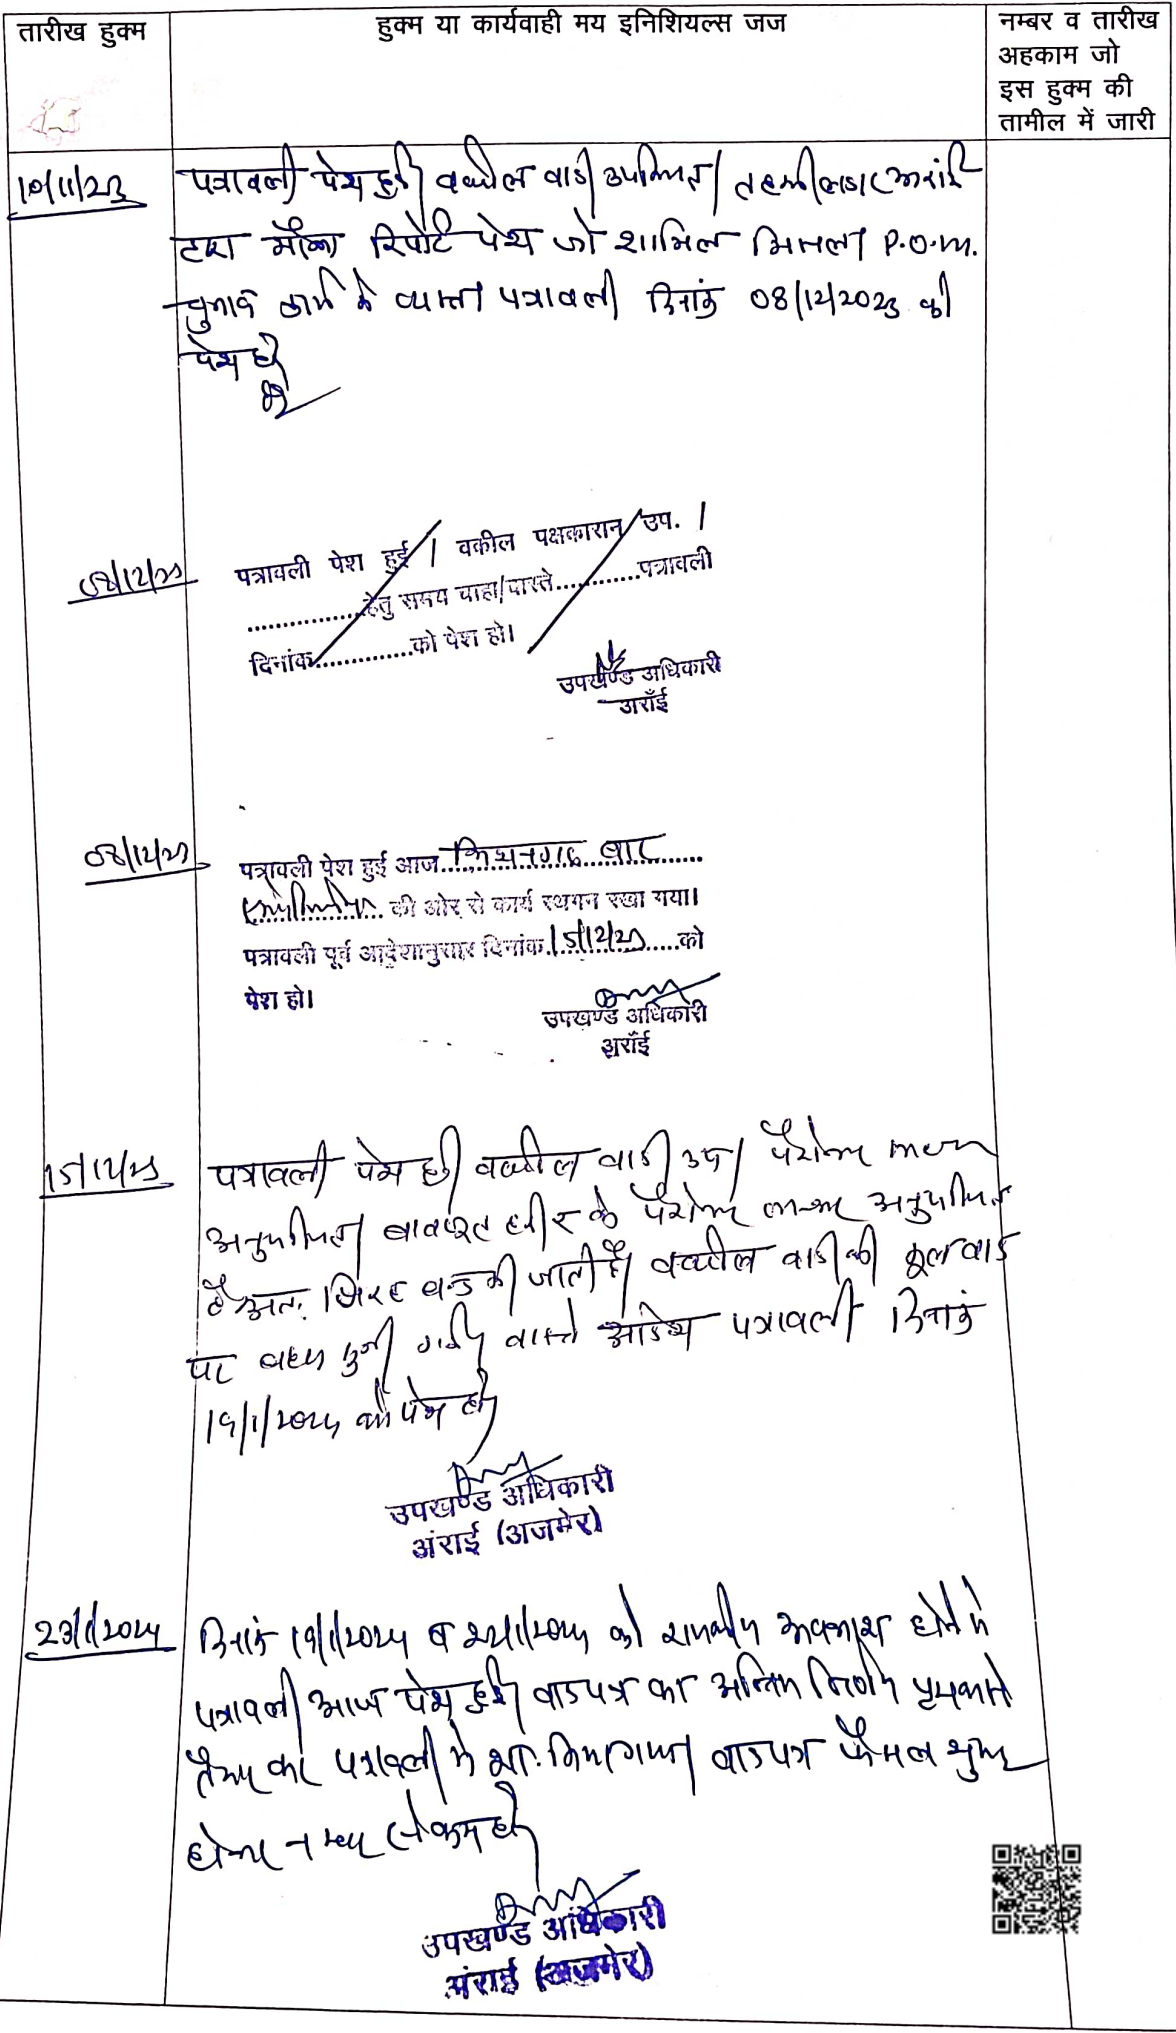 तारीख हुक्म
हुक्म या कार्यवाही मय इनिशियल्स जज
नम्बर व तारीख
अहकाम जो
इस हुक्म की
तामील में जारी
10/11/23
पत्रावली पेश हुई। वकील वादी उपस्थित। तहसीलदार अरांई
द्वारा मौका रिपोर्ट पेश जो शामिल मिसल। P.O.M.
चुनाव कार्य में व्यस्त। पत्रावली दिनांक 08/12/2023 को
पेश हो।
08/12/23
पत्रावली पेश हुई। वकील पक्षकारान उप. ।
..............हेतु समय चाहा/वास्ते............पत्रावली
दिनांक..............को पेश हो।
उपखण्ड अधिकारी
अराँई
08/12/23
पत्रावली पेश हुई आज किशनगढ बार
एसोसिएशन की ओर से कार्य स्थगन रखा गया।
पत्रावली पूर्व आदेशानुसार दिनांक 15/12/23 को
पेश हो।
उपखण्ड अधिकारी
अराँई
15/12/23
पत्रावली पेश हुई। वकील वादी उप।
अनुपस्थित। बावजूद के अनुपस्थित
है अतः जिरह बन्द की जाती है। वकील वादी की मूलवाद
पर बहस सुनी गयी। वास्ते आदेश पत्रावली दिनांक
19/1/2024 को पेश हो।
उपखण्ड अधिकारी
अंराई (अजमेर)
23/1/2024
दिनांक 19/1/2024 व 22/1/2024 को राजकीय अवकाश होने से
पत्रावली आज पेश हुई। वादपत्र का अन्तिम निर्णय पृथक से
तैयार कर पत्रावली में शा. किया गया। वादपत्र फैसल शुमार
होकर नम्बर से कम हो।
उपखण्ड अधिकारी
अंराई (अजमेर)